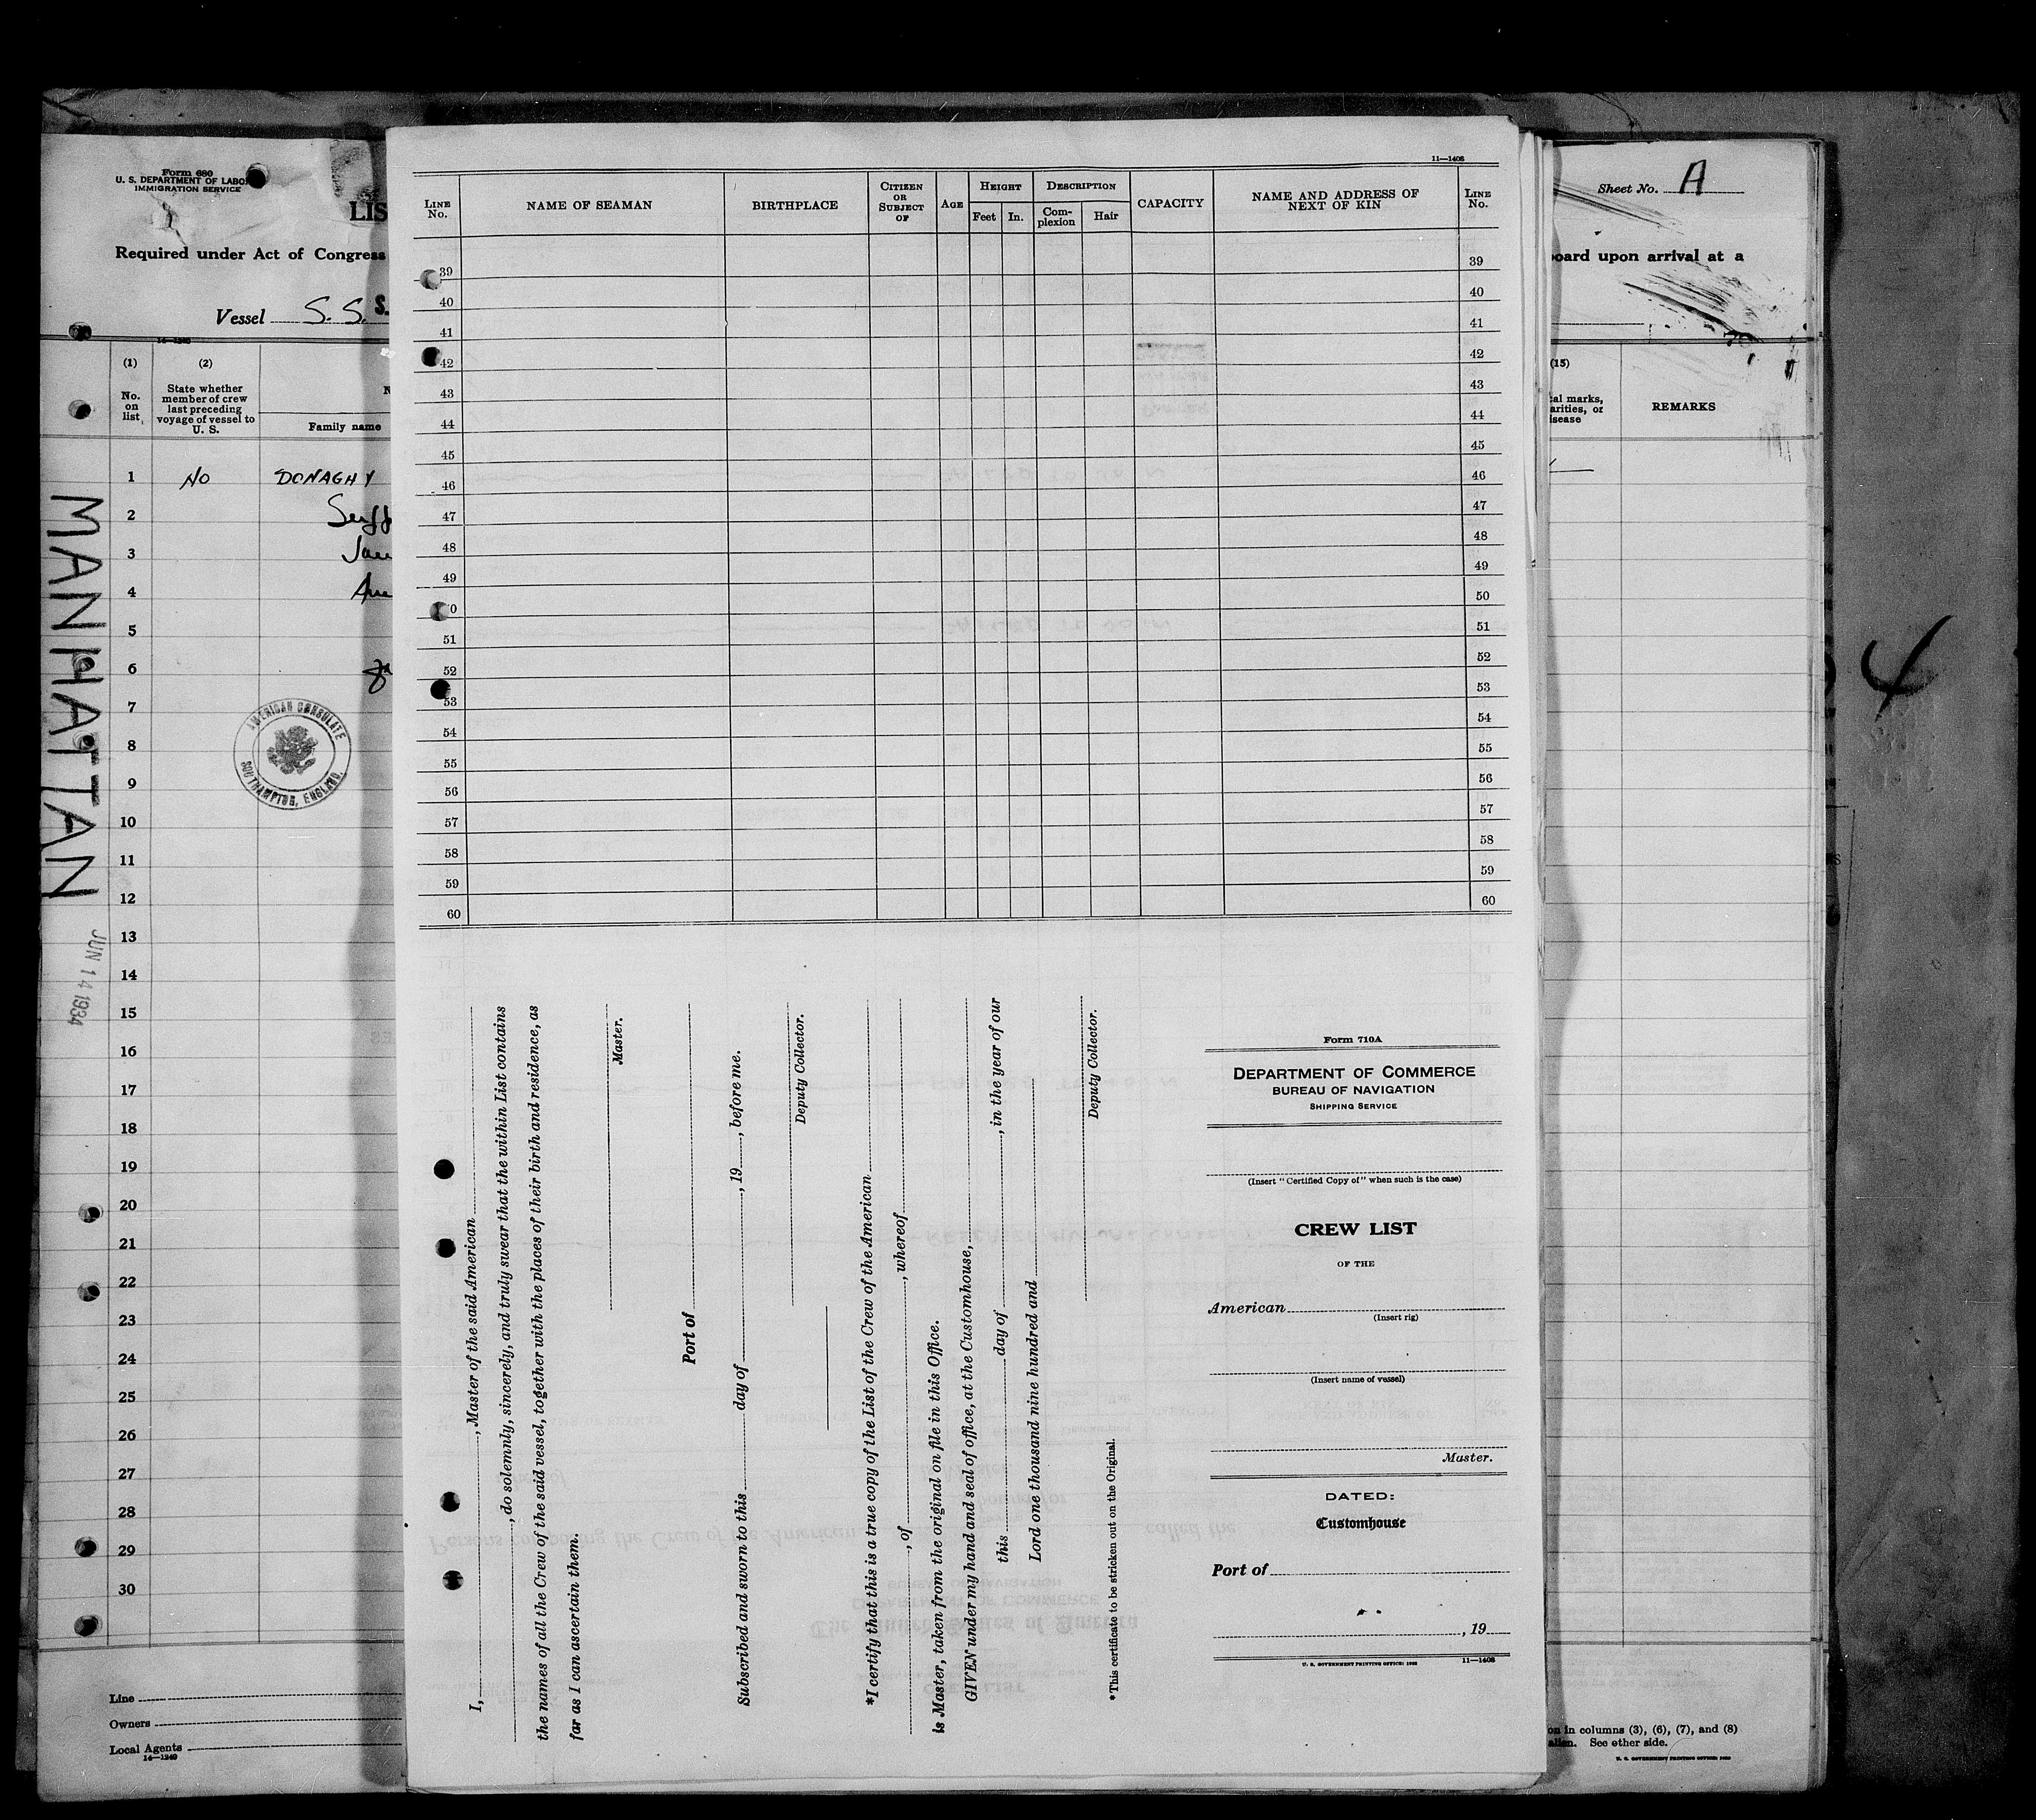 Form 680
U. S. DEPARTMENT OF LABOR
IMMIGRATION SERVICE
LIS
Required under Act of Congress
Vessel S. S. S.
14—1240
(1) (2)
No. on list
State whether member of crew last preceding voyage of vessel to U. S.
Family name
1 NO DONAGHY
2
3
4
5
6
7
8
9
10
11
12
13
14
15
16
17
18
19
20
21
22
23
24
25
26
27
28
29
30
MANHATTAN
JUN 14 1934
AMERICAN CONSULATE
SOUTHAMPTON, ENGLAND.
Line
Owners
Local Agents
14—1240
11—1408
LINE No. NAME OF SEAMAN BIRTHPLACE CITIZEN OR SUBJECT OF AGE HEIGHT DESCRIPTION CAPACITY NAME AND ADDRESS OF NEXT OF KIN LINE No.
Feet In. Complexion Hair
39 39
40 40
41 41
42 42
43 43
44 44
45 45
46 46
47 47
48 48
49 49
0 50
51 51
52 52
53 53
54 54
55 55
56 56
57 57
58 58
59 59
60 60
I, , Master of the said American
, do solemnly, sincerely, and truly swear that the within List contains
the names of all the Crew of the said vessel, together with the places of their birth and residence, as
far as I can ascertain them.
Master.
Port of
Subscribed and sworn to this day of , 19 , before me.
Deputy Collector.
*I certify that this is a true copy of the List of the Crew of the American
, of , whereof
is Master, taken from the original on file in this Office.
GIVEN under my hand and seal of office, at the Customhouse,
this day of , in the year of our
Lord one thousand nine hundred and
Deputy Collector.
*This certificate to be stricken out on the Original.
Form 710A
DEPARTMENT OF COMMERCE
BUREAU OF NAVIGATION
SHIPPING SERVICE
(Insert "Certified Copy of" when such is the case)
CREW LIST
OF THE
American
(Insert rig)
(Insert name of vessel)
Master.
DATED:
Customhouse
Port of
, 19
U. S. GOVERNMENT PRINTING OFFICE: 11—1408
Sheet No. A
board upon arrival at a
(15)
al marks,
arities, or
isease
REMARKS
on in columns (3), (6), (7), and (8)
alien. See other side.
U. S. GOVERNMENT PRINTING OFFICE:
4